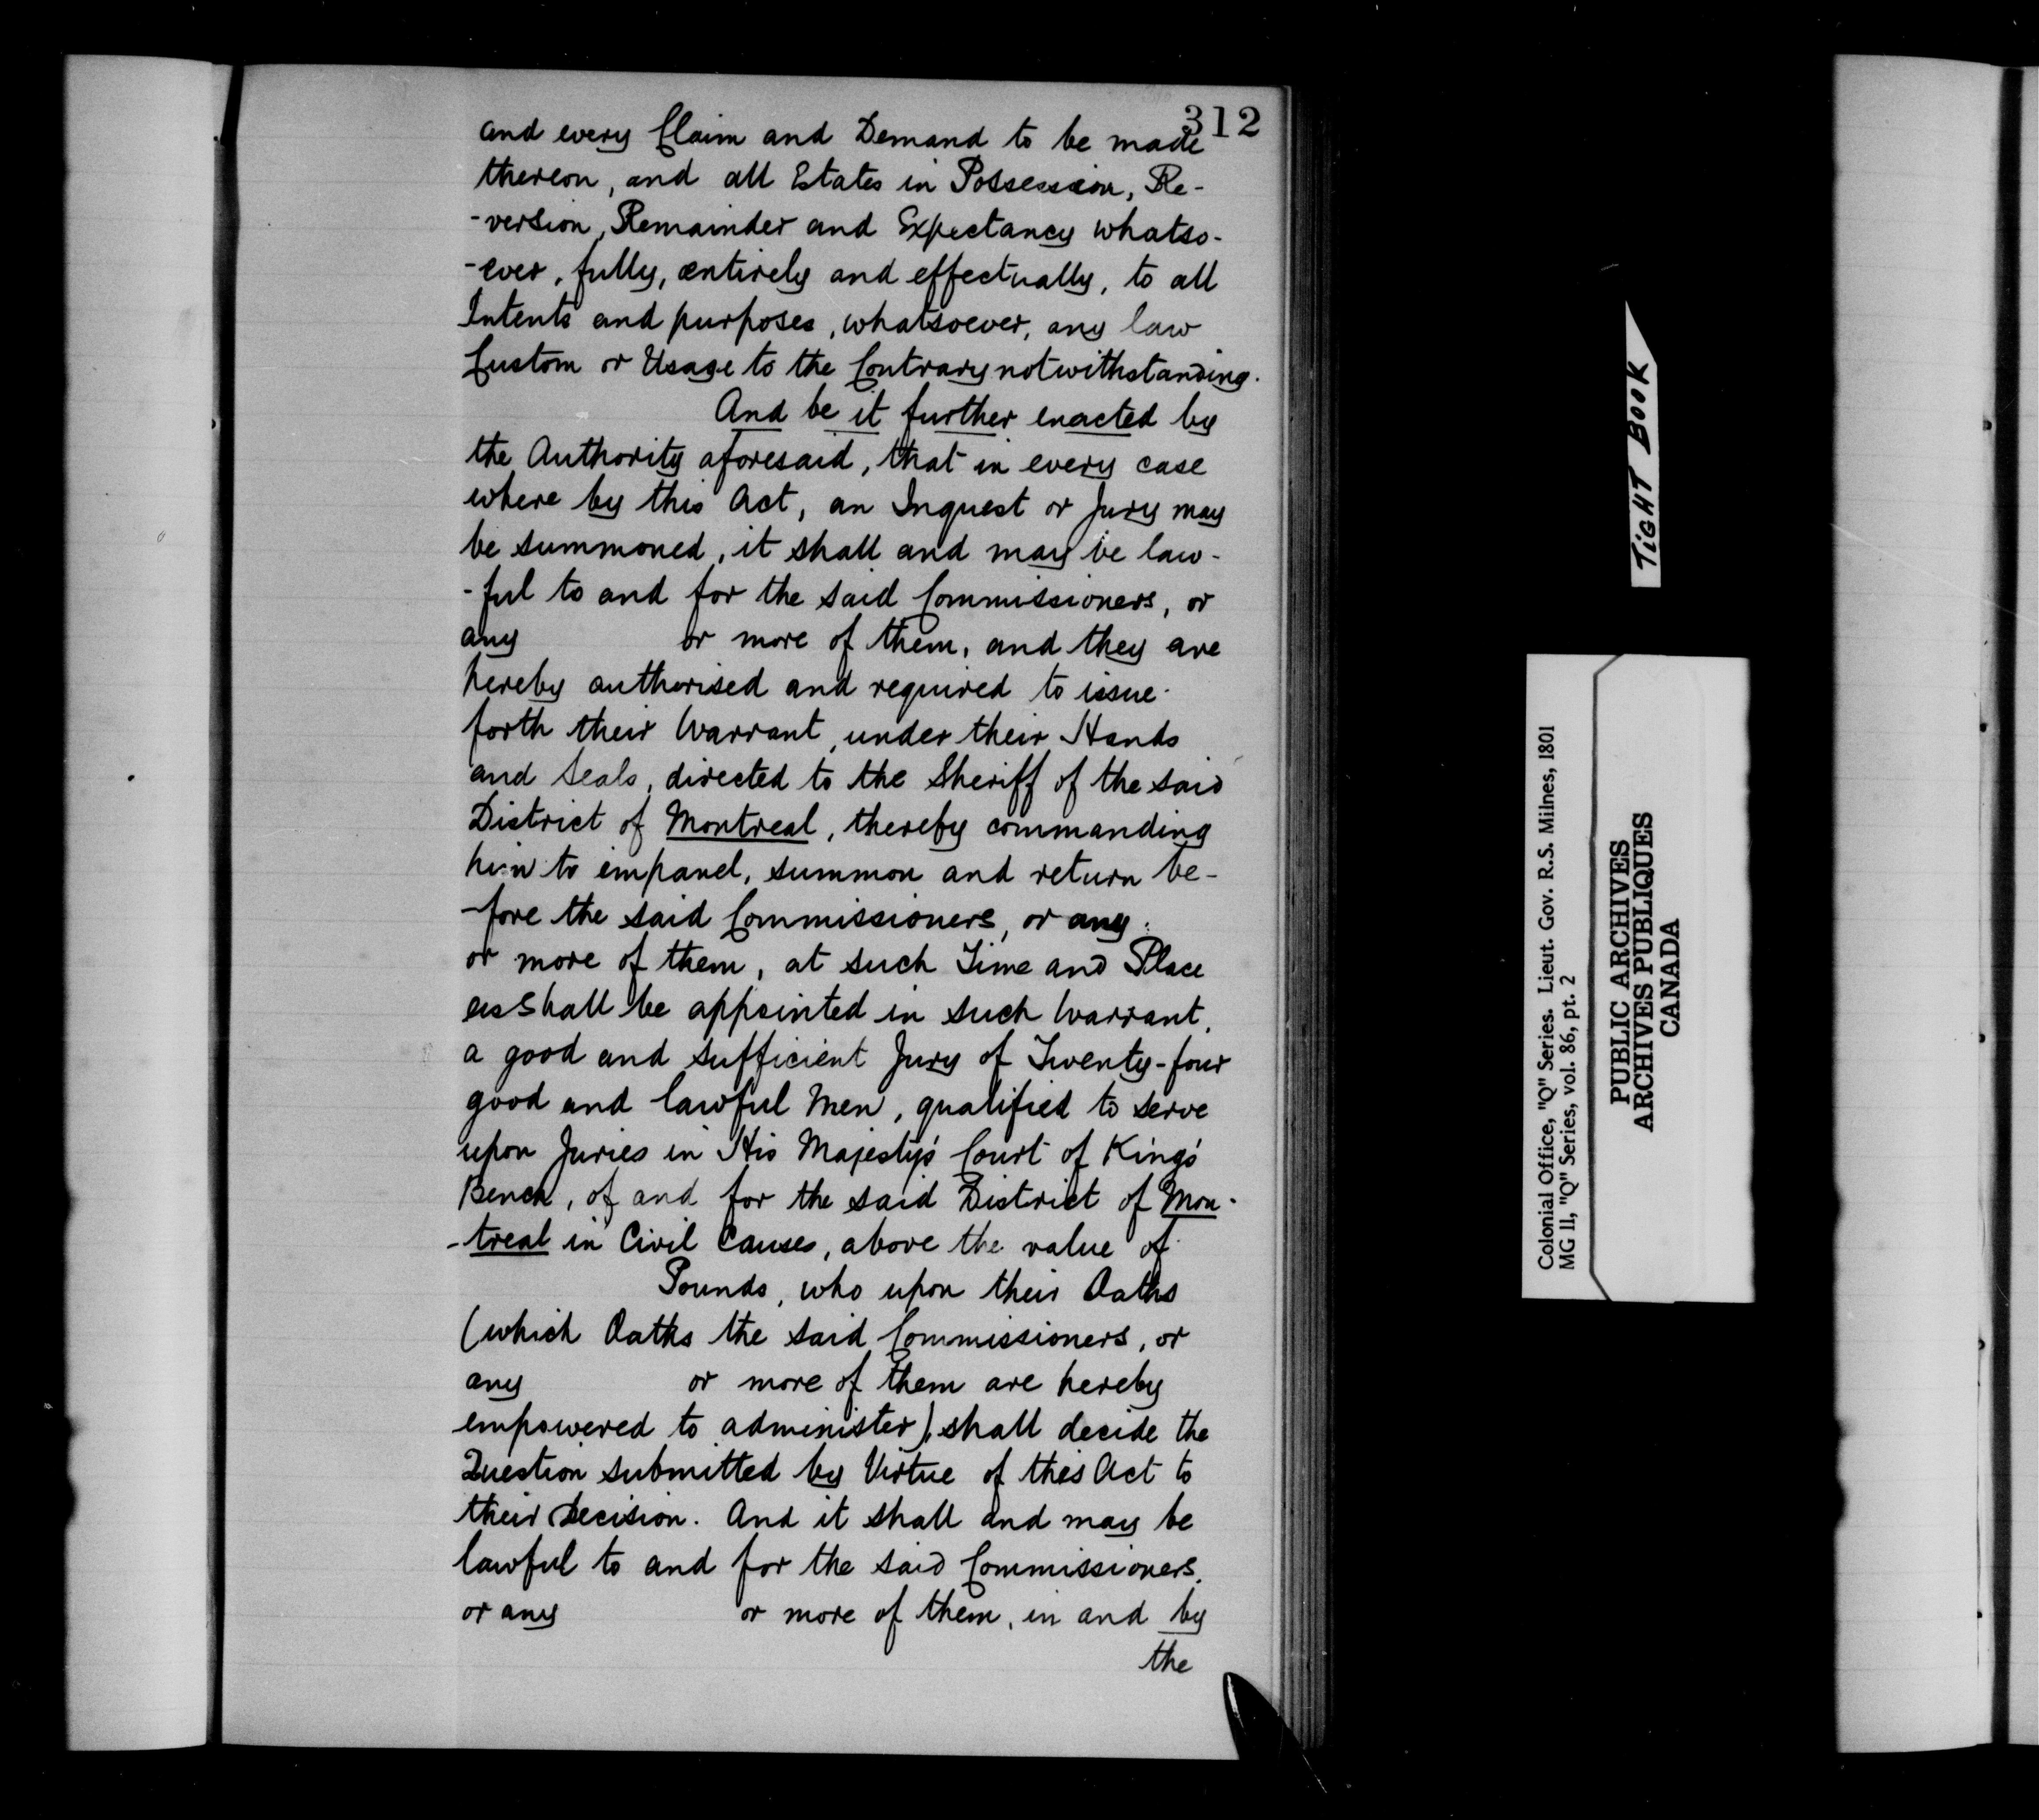 312
and every Claim and Demand to be made
thereon, and all Estates in Possession, Re-
-version, Remainder and Expectancy whatso-
-ever, fully, entirely and effectually, to all
Intents and purposes, whatsoever, any law
Custom or Usage to the Contrary notwithstanding.
And be it further enacted by
the Authority aforesaid, that in every case
where by this Act, an Inquest or Jury may
be summoned, it shall and may be law-
-ful to and for the said Commissioners, or
any or more of them, and they are
hereby authorised and required to issue
forth their Warrant, under their Hands
and Seals, directed to the Sheriff of the said
District of Montreal, thereby commanding
him to empanel, summon and return be-
-fore the said Commissioners, or any
or more of them, at such Time and Place
as shall be appointed in such Warrant,
a good and sufficient Jury of Twenty-four
good and lawful Men, qualified to serve
upon Juries in His Majesty's Court of King's
Bench, of and for the said District of Mon-
-treal in Civil Causes, above the value of
Pounds, who upon their Oaths
(which Oaths the said Commissioners, or
any or more of them are hereby
empowered to administer), shall decide the
Question submitted by Virtue of this Act to
their Decision. And it shall and may be
lawful to and for the said Commissioners,
or any or more of them, in and by
the
TIGHT BOOK
Colonial Office, "Q" Series. Lieut. Gov. R.S. Milnes, 1801
MG 11, "Q" Series, vol. 86, pt. 2
PUBLIC ARCHIVES
ARCHIVES PUBLIQUES
CANADA